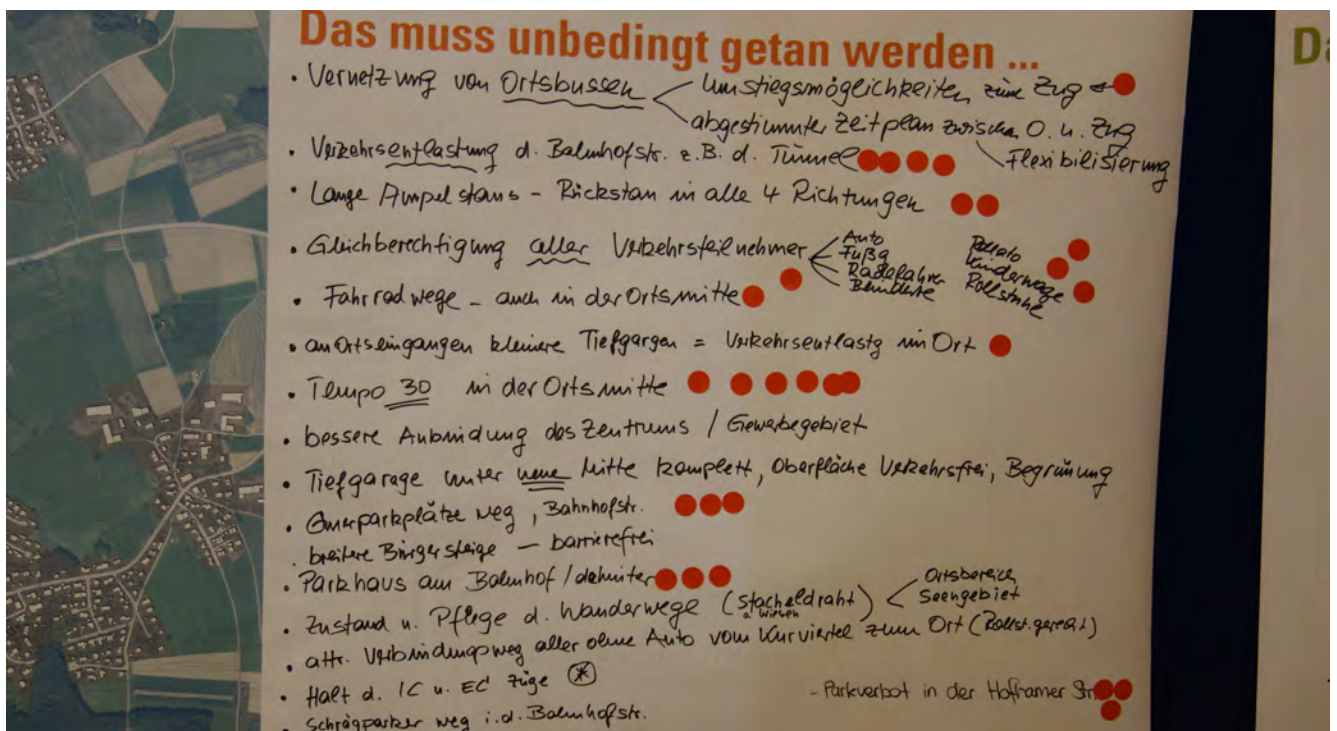 Das muss unbedingt getan werden ...
D
• Vernetzung von Ortsbussen < Umstiegsmöglichkeiten zum Zug
abgestimmter Zeitplan zwischen O. u. Zug
Flexibilisierung
• Verkehrsentlastung d. Bahnhofstr. z.B. d. Tunnel
• Lange Ampelstaus - Rückstau in alle 4 Richtungen
• Gleichberechtigung aller Verkehrsteilnehmer < Auto
Fußg
Radfahrer
Behinderte
Rollato
Kinderwage
Rollstühle
• Fahrradwege - auch in der Ortsmitte
• an Ortseingangen kleinere Tiefgargen = Verkehrsentlastg im Ort
• Tempo 30 in der Ortsmitte
• bessere Anbindung des Zentrums / Gewerbegebiet
• Tiefgarage unter neue Mitte komplett, Oberfläche Verkehrsfrei, Begrünung
• Querparkplätze weg, Bahnhofstr.
. breitere Bürgersteige — barrierefrei
• Parkhaus am Bahnhof / dahinter
• Zustand u. Pflege d. Wanderwege (Stacheldraht) < Ortsbereich
a Wiesen
Seengebiet
• attr. Verbindungsweg aller ohne Auto vom Kurviertel zum Ort (Rollst.gerecht)
• Halt d. IC u. EC Züge (*)
- Parkverbot in der Hofhamer Str.
• Schrägparker weg i.d. Bahnhofstr.